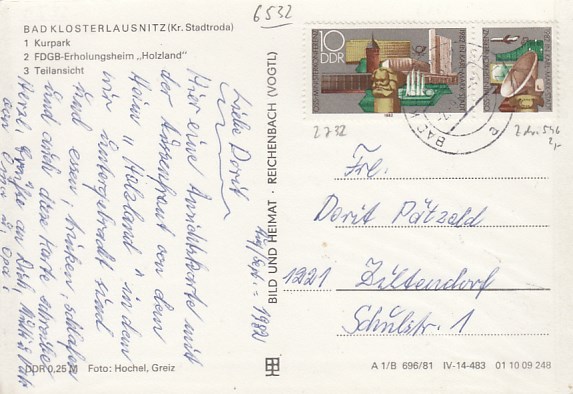 BAD KLOSTERLAUSNITZ (Kr. Stadtroda)
1 Kurpark
2 FDGB-Erholungsheim „Holzland"
3 Teilansicht
6532
Liebe Dorit
Hier eine Ansichtskarte mit
der Aussenfront von dem
Heim „Holzland" in dem
wir untergebracht sind
und essen, trinken, schlafen
und auch diese Karte schreiben
Herzl. Grüße an Dich, Mutti & Vati
von Oma & Opa!
Aug./Sept. = 1982
DDR 0,25 M Foto: Hochel, Greiz
BILD UND HEIMAT · REICHENBACH (VOGTL)
10
DDR
1982
BAD
2732
Zdr. 546
2,-
Frl.
Dorit Pätzold
1221 Ziltendorf
Schulstr. 1
A 1/B 696/81 IV-14-483 01 10 09 248